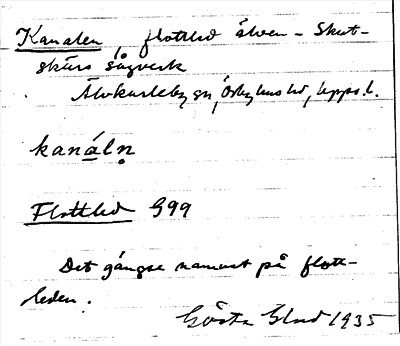 Kanalen flottled älven - Skut-
skärs sågverk
Älvkarleby sn, Örbyhus hd, Upps. l.
kanáln
Flottled 899
Det gångse namnet på flott-
leden.
Gösta Elud 1935